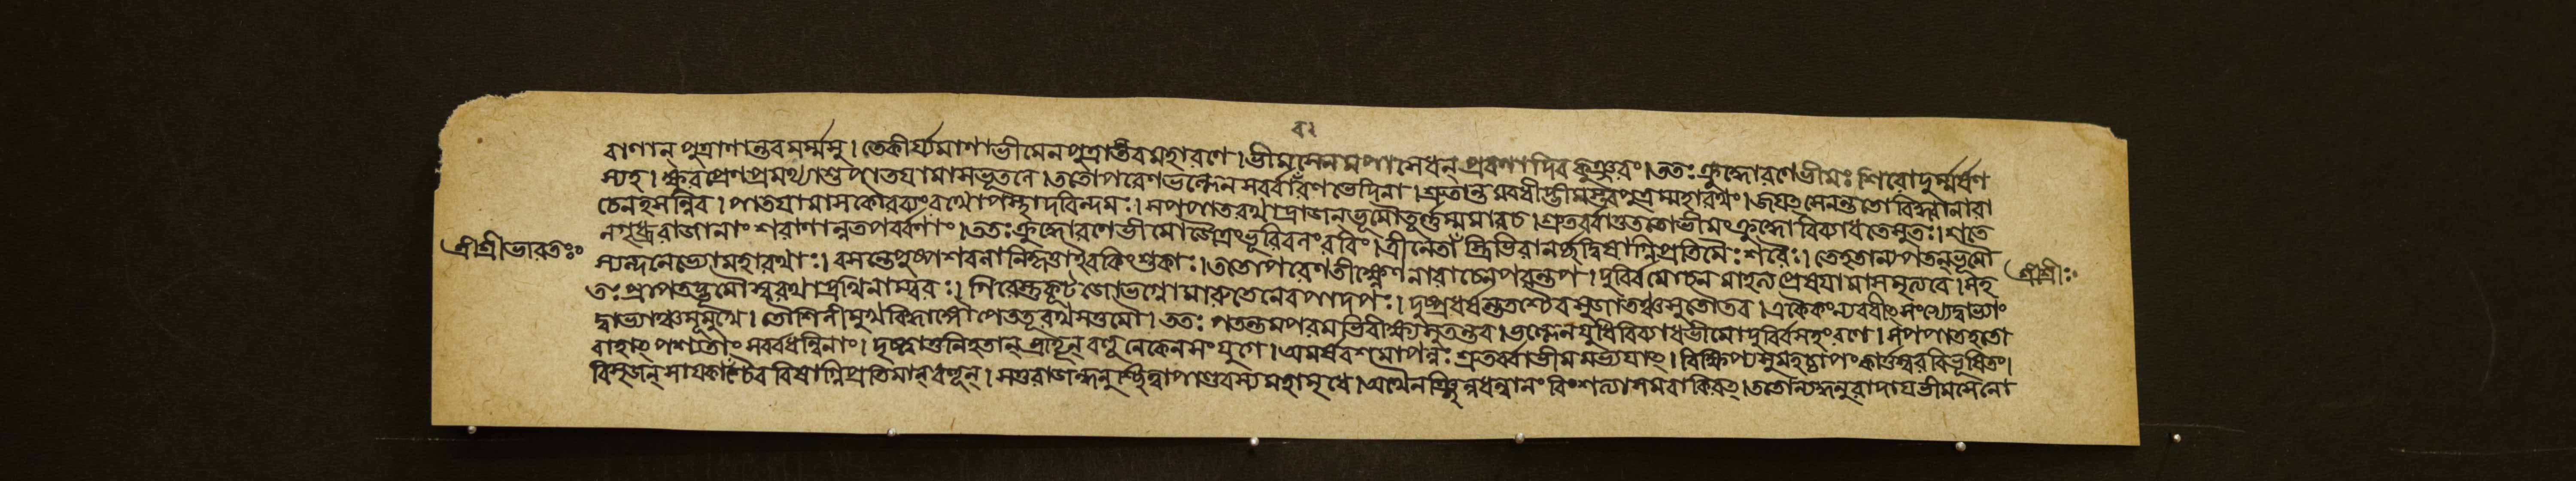 বাণান্ পুত্রাণান্তব মর্ম্মসু। তেকীর্য্যমাণাভীমেনপুত্রাস্তবমহারণে। ভীমসেনমপাসেধন্ প্রবণাদিব কুঞ্জরং। ততঃ ক্রুদ্ধোরণেভীমঃ শিরোদুর্ম্মর্ষণ
স্যহ। ক্ষুরপ্রেণপ্রমথ্যাশুপাতযামাসভূতলে। ততোপরেণভল্লেনসর্ব্বাবরণভেদিনা। শ্রুতান্তমবধীদ্ভীমস্তবপুত্রম্মহারথং। জযৎসেনন্ততোবিদ্ধ্বানারা
চেনহসন্নিব। পাতযামাসকৌরব্যংরথোপস্থাদরিন্দমঃ। সপপাতরথাদ্রাজন্ভূমৌতূর্ণম্মমারচ। শ্রুতর্ব্বাতুততোভীমংক্রুদ্ধোবিব্যাধতেসুতঃ। শতে
নগৃধ্ররাজানাং শরাণান্নতপর্ব্বণাং। ততঃক্রুদ্ধোরণেভীমোজৈত্রংভূরিবলংরবিং। ত্রীনেতাঁস্ত্রিভিরানর্চ্ছদ্বিষাগ্নিপ্রতিমৈঃশরৈঃ। তেহতান্যপতন্ভূমৌ
স্যন্দনেভ্যোমহারথাঃ। বসন্তেপুষ্পশবলানিকৃত্তাইবকিংশুকাঃ। ততোপরেণতীক্ষ্ণেননারাচেনপরন্তপ। দুর্ব্বিমোচনমাহত্যপ্রেষযামাসমৃত্যবে। সহ
শ্রীশ্রীভারতঃ
শ্রীশ্রীঃ
তঃপ্রাপতদ্ভূমৌস্বরথাদ্রথিনাম্বরঃ। গিরেস্তুকূটজোভগ্নোমারুতেনেবপাদপঃ। দুষ্প্রধর্ষন্ততশ্চৈবসুজাতঞ্চসুতৌতব। একৈকংন্যবধীৎসংখ্যেদ্বাভ্যাং
দ্বাভ্যাঞ্চমূমুখে। তৌশিলীমুখবিদ্ধাঙ্গৌপেততূরথসত্তমৌ। ততঃ পতন্তমপরমভিবীক্ষ্যসুতন্তব। ভল্লেনযুধিবিব্যাধভীমোদুর্ব্বিসহংরণে। সপপাতহতো
বাহাৎপশ্যতাং সর্ব্বধন্বিনাং। দৃষ্ট্বাতুনিহতান্ ভ্রাতৄন্ বহূনেকেনসংযুগে। অমর্ষবশমাপন্নঃ শ্রুতর্ব্বাভীমমভ্যযাৎ। বিক্ষিপ্যসুমহচ্চাপংকার্ত্তস্বরবিভূষিতং।
বিসৃজন্ সাযকাংশ্চৈববিষাগ্নিপ্রতিমান্বহূন্। সতুরাজন্ধনুশ্ছিত্ত্বাপাণ্ডবস্যমহামৃধে। অথৈনঞ্ছিন্নধন্বানং বিংশত্যাসমবাকিরৎ। ততোন্যদ্ধনুরাদাযভীমসেনো